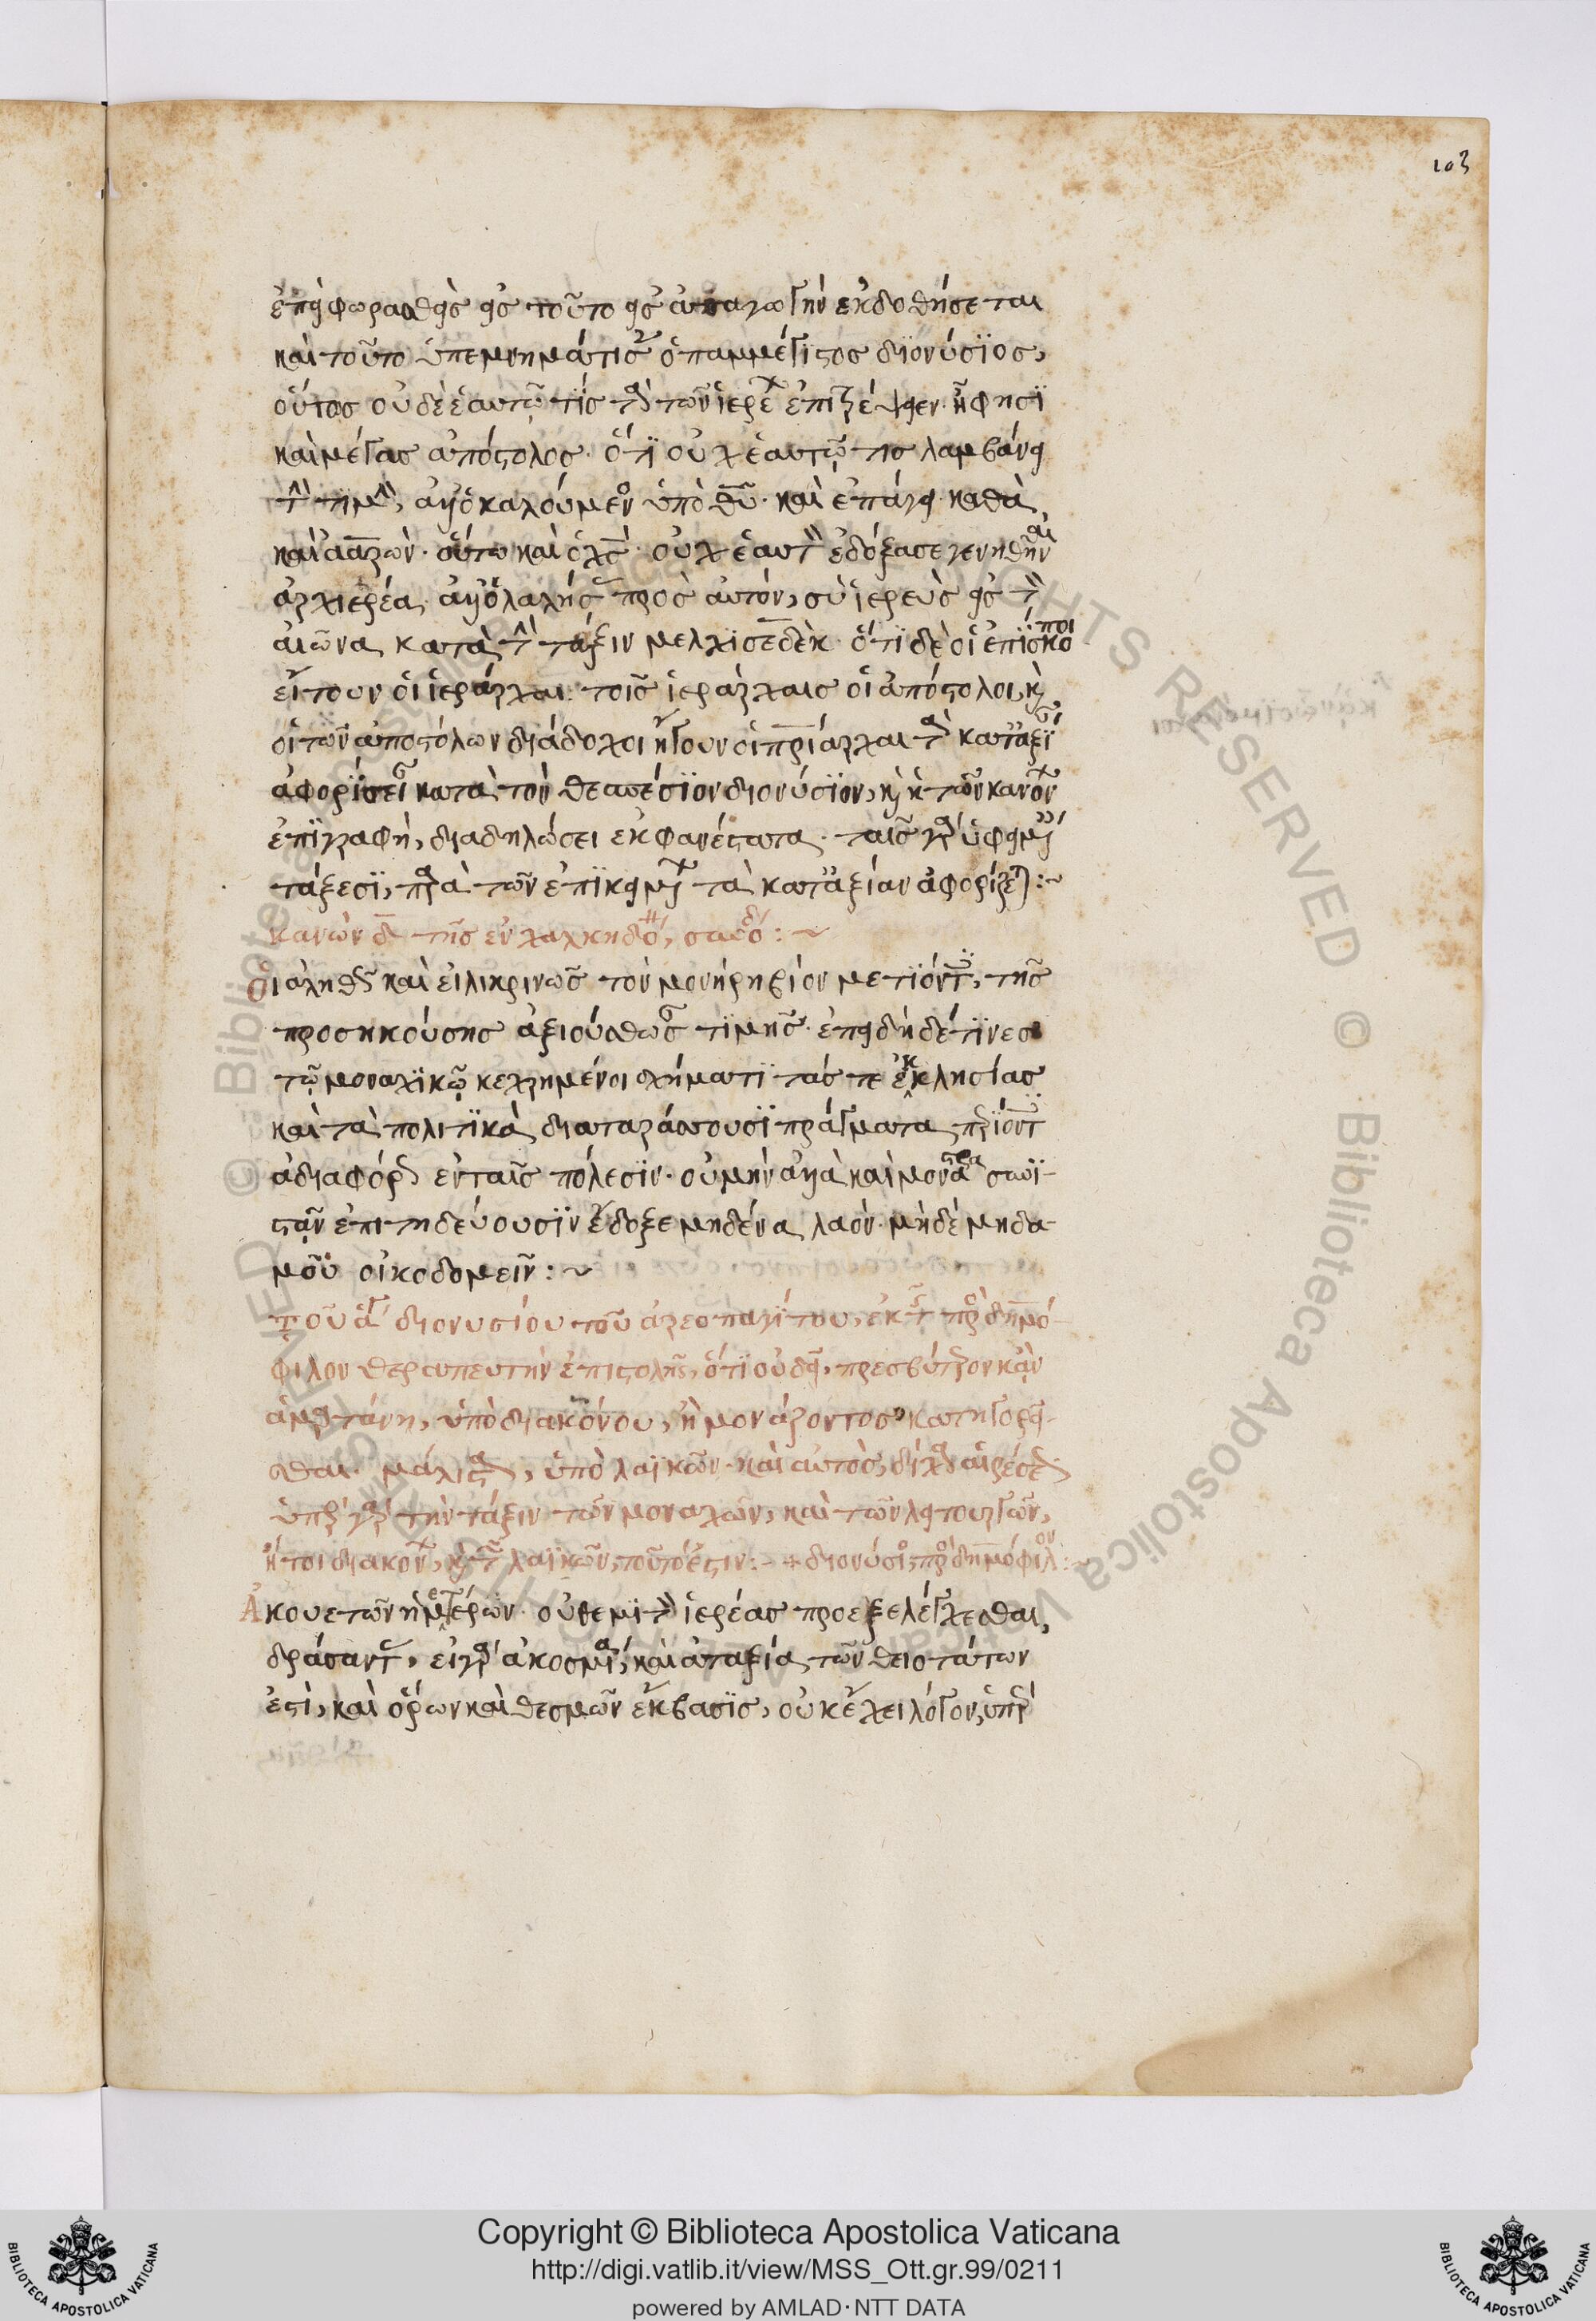 103
ἐπεὶ φωραθεὶς εἰς τοῦτο εἰς ἀπαγωγὴν ἐκδοθήσεται
καὶ τοῦτο ὑπεμνημάτισε ὁ παμμέγιστος διονύσιος,
οὕτος οὐδὲ ἑαυτῷ τίς τὰ τῶν ἱερέων ἐπιτρέψειεν. ἦ φησὶ
καὶ μέγας ἀπόστολος. ὅτι οὐχ ἑαυτῷ τις λαμβάνει
τὴν τιμὴν, ἀλλ' ὁ καλούμενος ὑπὸ θῦ. καὶ ἐπάγει. καθὰ
καὶ ἀαρών. οὕτω καὶ ὁ χς. οὐχ ἑαυτὸν ἐδόξασε γενηθῆναι
ἀρχιερέα, ἀλλ' ὁ λαλήσας πρὸς αὐτόν, σὺ ἱερεὺς εἰς τὸν
αἰῶνα κατὰ τὴν τάξιν μελχισεδέκ. ὅτι δὲ οἱ ἐπίσκοποι
εἴτουν οἱ ἱεράρχαι. τοῖς ἱεράρχαις οἱ ἀπόστολοι, καὶ
οἱ τῶν ἀποστόλων διάδοχοι ἤγουν οἱ πριάρχαι τὰ κατ' ἀξίαν
ἀφορίσει κατὰ τὸν θεσπέσιον διονύσιον, καὶ ἡ τῶν κανόνων
ἐπιγραφὴ, διαδηλώσει ἐκφανέστατα. ταῖς γὰρ ὑφειμέναις
τάξεσι, παρὰ τῶν ἐπικειμένων τὰ κατ' ἀξίαν ἀφορίζεται:~
κανὼν δ τῆς ἐν χαλκηδόνι, συνόδου:~
Οἱ ἀληθῶς καὶ εἰλικρινῶς τὸν μονήρη βίον μετιόντες, τῆς
προσηκούσης ἀξιούσθωσαν τιμῆς. ἐπειδὴ δέ τινες
τῷ μοναχικῷ κεχρημένοι σχήματι τάς τε ἐκκλησίας
καὶ τὰ πολιτικὰ διαταράσσουσι πράγματα, περιιόντες
ἀδιαφόρως ἐν ταῖς πόλεσιν. οὐ μὴν ἀλλὰ καὶ μοναστήρια συνι-
στᾷν ἐπιτηδεύουσιν ἔδοξε μηδένα λαὸν. μηδὲ μηδα-
μοῦ οἰκοδομεῖν:~
τοῦ ἁγίου διονυσίου τοῦ ἀρεοπαγίτου, ἐκ τῆς πρὸς δημό-
φιλον θεραπευτὴν ἐπιστολῆς, ὅτι οὐ δεῖ, πρεσβύτερον κἂν
ἁμαρτάνῃ, ὑπὸ διακόνου, ἢ μονάζοντος κατηγορεῖ-
σθαι. μάλιστα, ὑπὸ λαϊκῶν. καὶ αὐτὸς, δίχα αἱρέσεως
ὑπὲρ γὰρ τὴν τάξιν τῶν μοναχῶν, καὶ τῶν λειτουργῶν,
ἤτοι διακόνων, καὶ τῶν λαϊκῶν, τοῦτό ἐστιν:-+ διονύσιος, πρὸς δημόφιλον:~
Ἄκουε τῶν ἡμετέρων. οὐ θεμιτὸν ἱερέας προεξελέγχεσθαι,
δράσαντας, εἰ γὰρ ἀκοσμία, καὶ ἀταξία, τῶν θειοτάτων
ἐστὶ, καὶ ὅρων καὶ θεσμῶν ἔκβασις, οὐκ ἔχει λόγον, ὑπὲρ
Copyright © Biblioteca Apostolica Vaticana
http://digi.vatlib.it/view/MSS_Ott.gr.99/0211
powered by AMLAD·NTT DATA